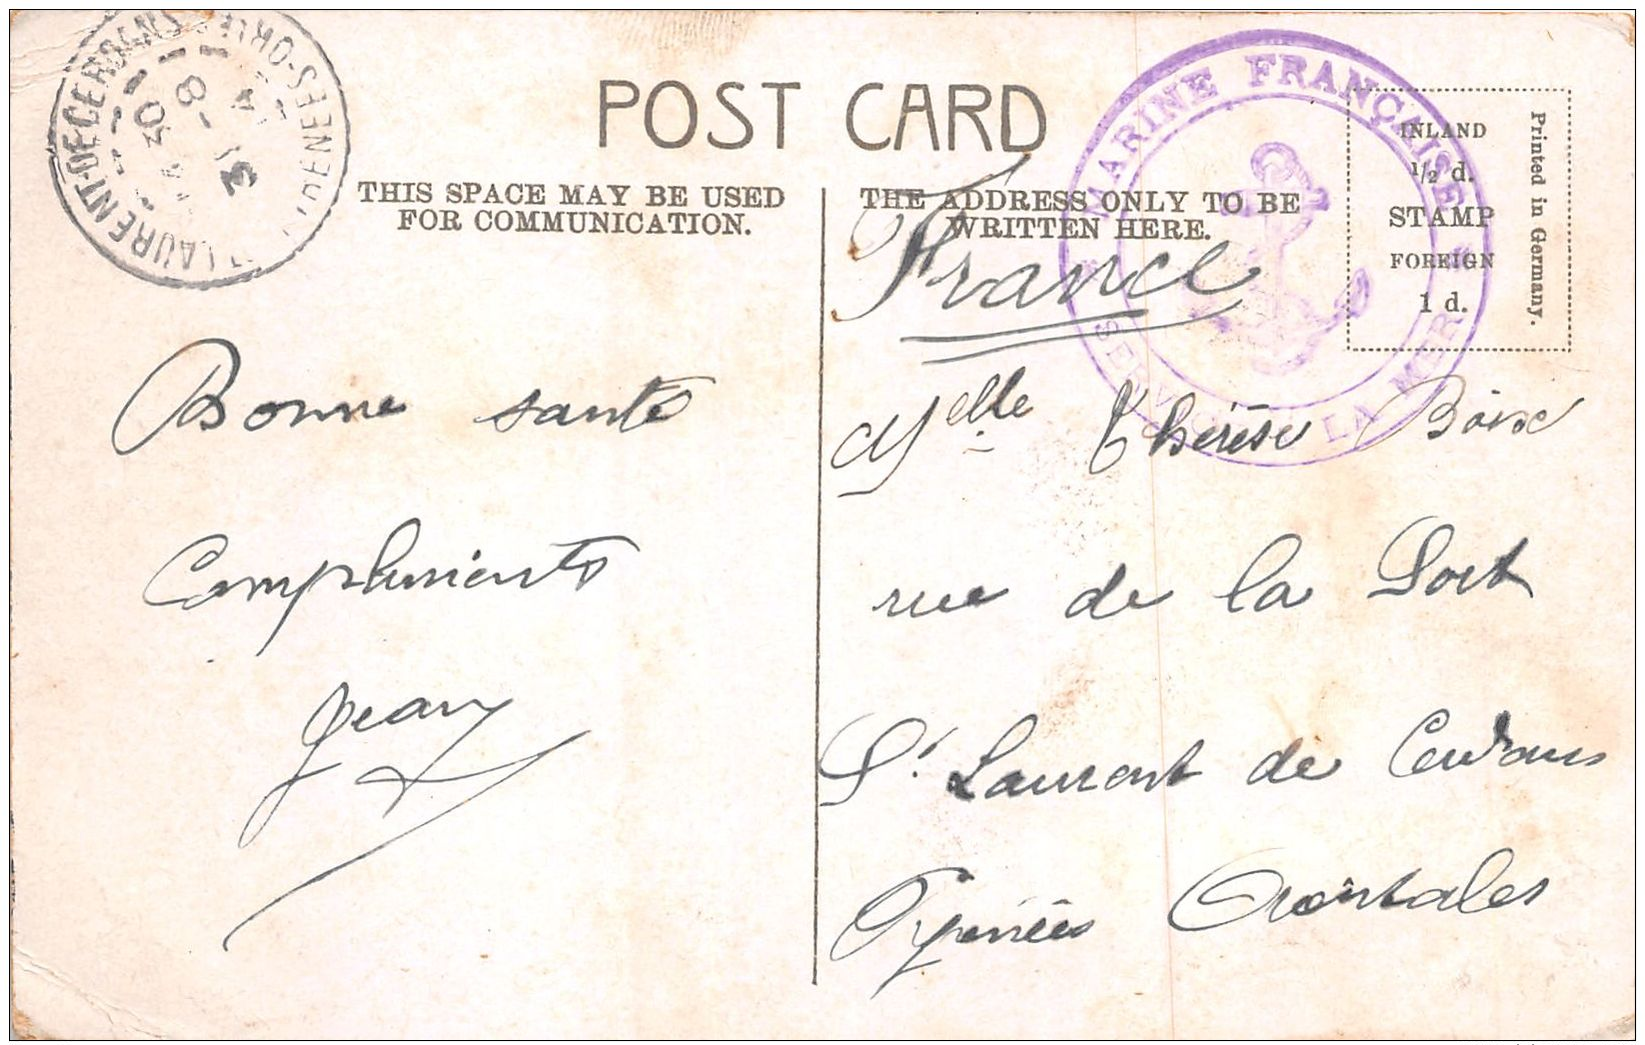 POST CARD
THIS SPACE MAY BE USED
FOR COMMUNICATION.
THE ADDRESS ONLY TO BE
WRITTEN HERE.
INLAND
1/2 d.
STAMP
FOREIGN
1 d.
Printed in Germany.
MARINE FRANÇAISE
SERVICE LA MER
LAURENT-DE-CERDANS
France
Bonne santé
Compliments
Jean
Melle Thérèse
rue de la Port
St Laurent de Cerdans
Pyrénées Orientales